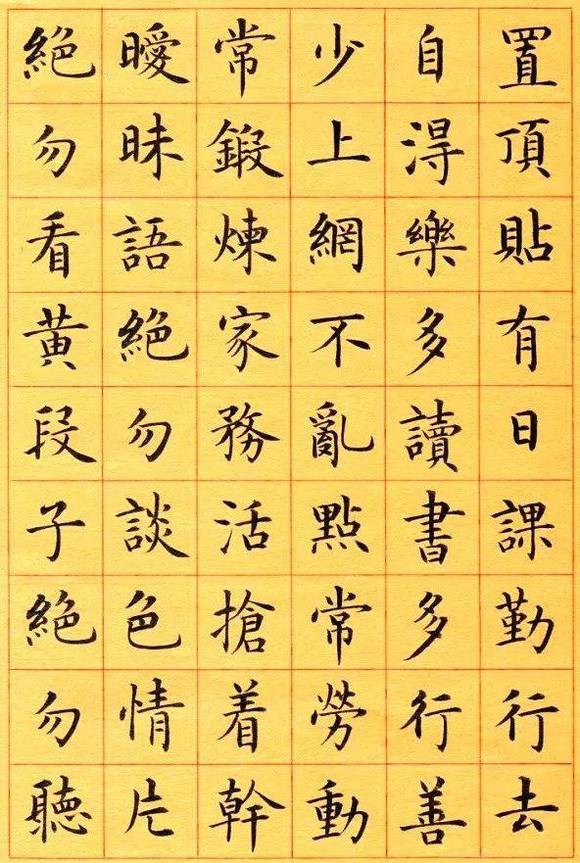 置頂貼有日課勤行去
自淂樂多讀書多行善
少上網不亂點常勞動
常鍛煉家務活搶着幹
曖昧語絕勿談色情片
絕勿看黃段子絕勿聽